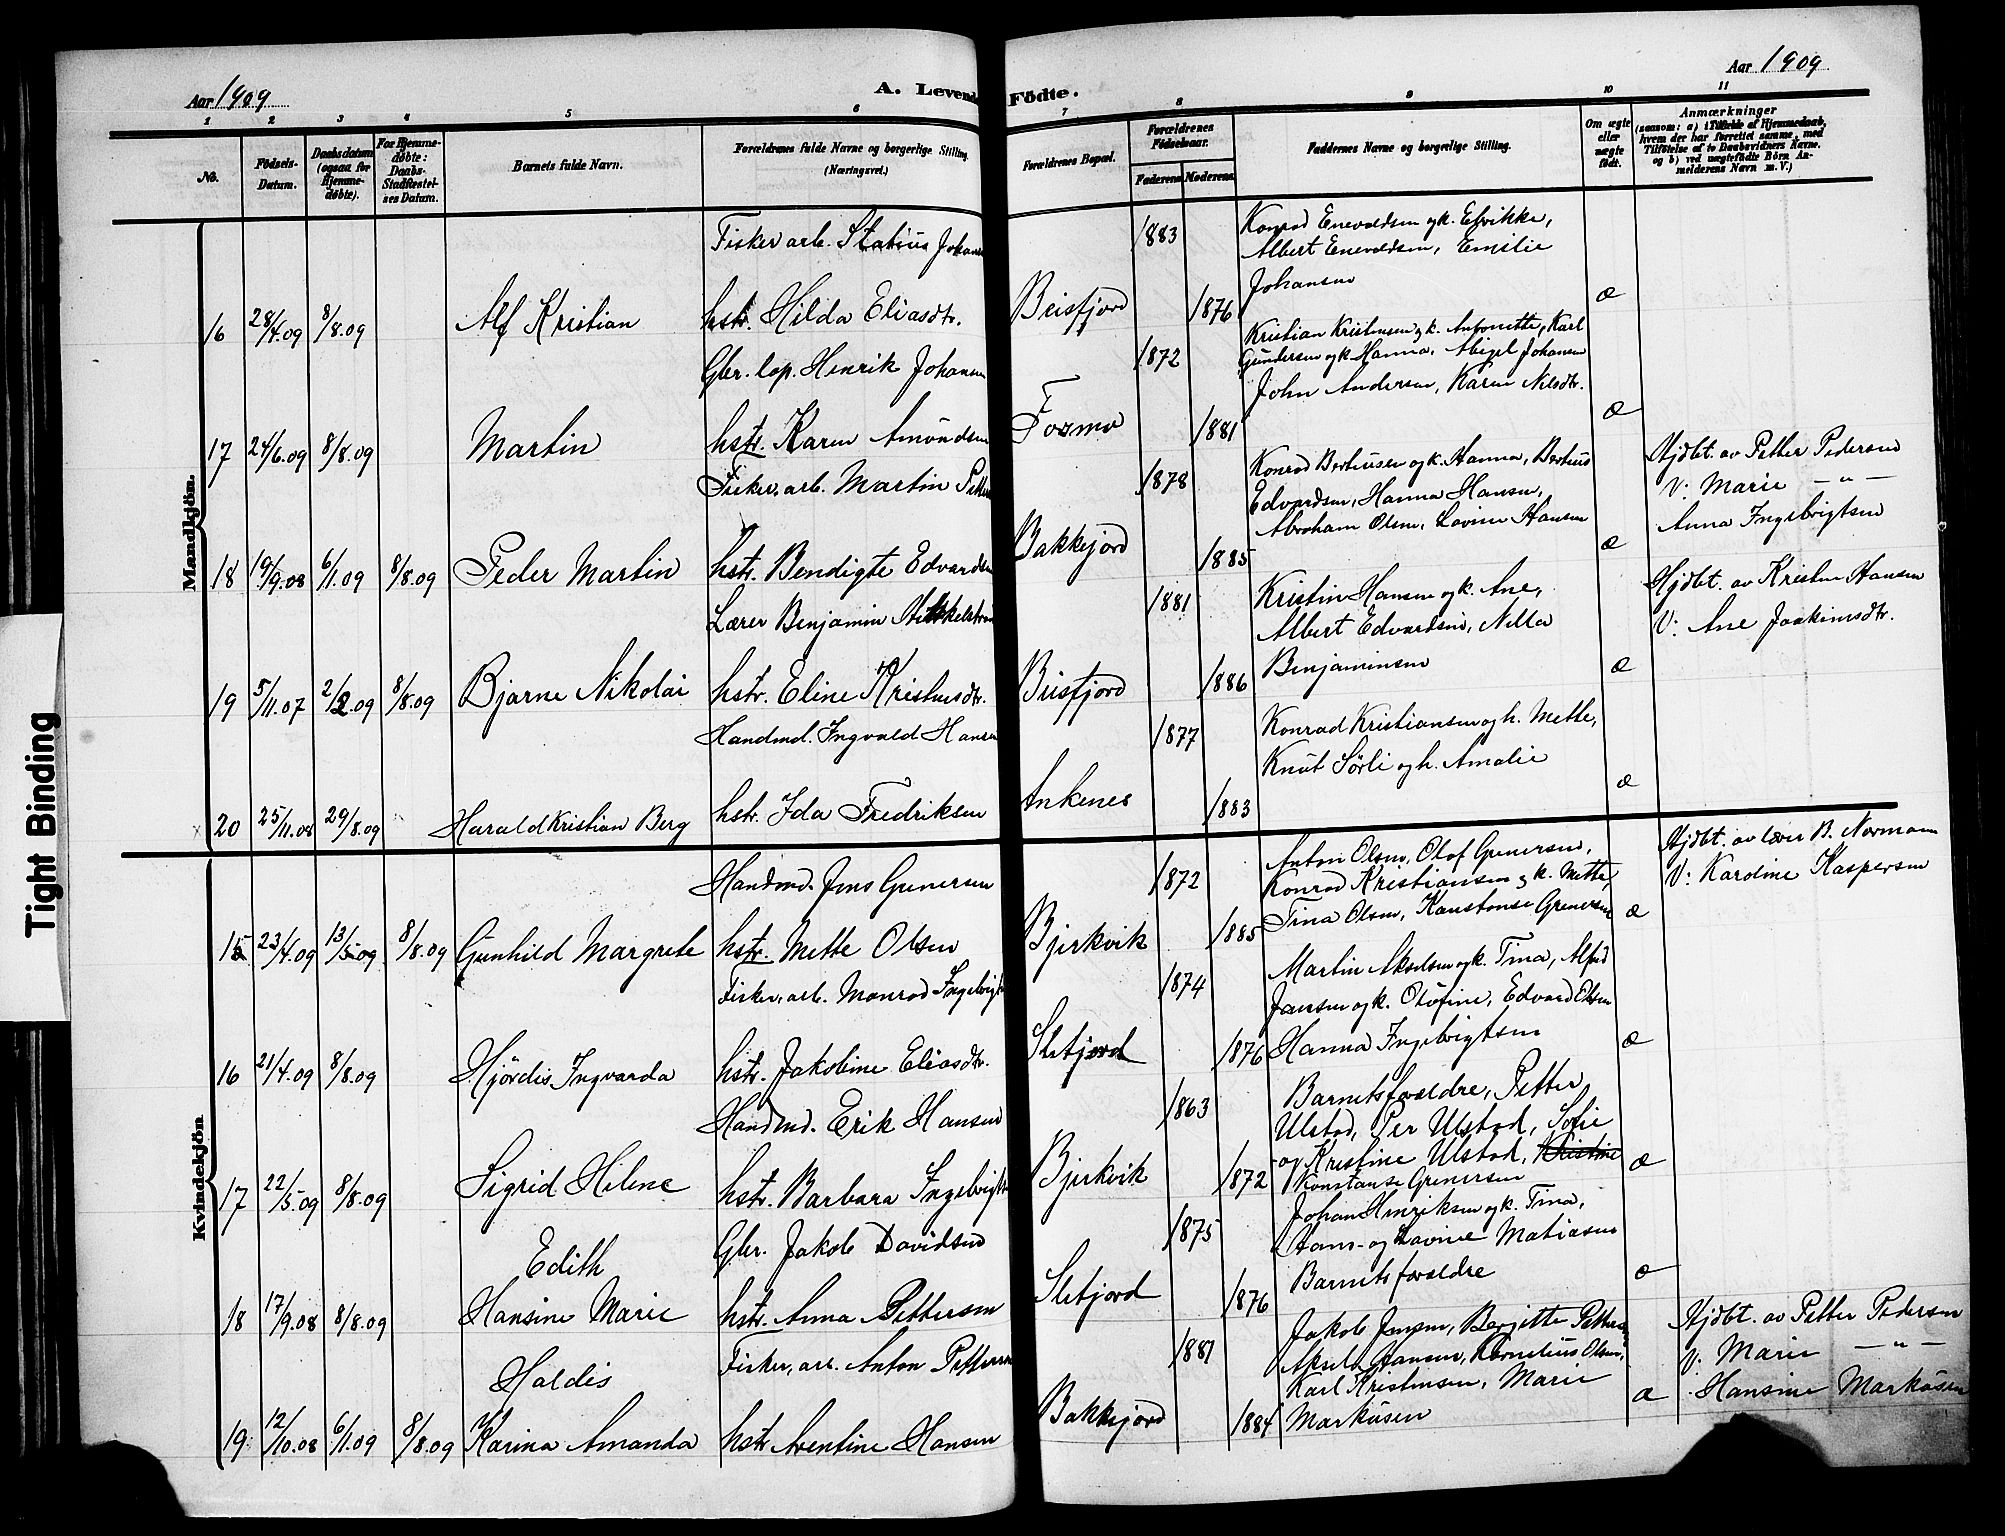 Aar 1909
A. Levende Födte.
Aar 1909
1 2 3 4 5 6 7 8 9 10 11
No.
Födsels-Datum.
Daabsdatum (ogsaa for Hjemme-døbte).
For Hjemme-døbte: Daabs-Stadfæstel-ses Datum.
Barnets fulde Navn.
Forældrenes fulde Navne og borgerlige Stilling. (Næringsvei.)
Forældrenes Bopæl.
Forældrenes Födselsaar.
Faderens Moderens
Faddernes Navne og borgerlige Stilling.
Om ægte eller uægte født.
Anmærkninger
(saasom: a) i Tilfælde af Hjemmedaab,
hvem der har forrettet samme, med
Tilföielse af to Daabsvidners Navne.
og b) ved uægtefødte Börn An-
melderens Navn m. V.)
Mandkjön.
Fisker, arb. Statius Johans
1883
Konrad Enevoldsen og k. Efrikke,
Albert Enevoldsen, Emilie
Johansen
16 28/4.09 8/8.09 Alf Kristian hstr. Hilda Eliasdtr. Beisfjord 1876 æ
Gbr. lap. Henrik Johansen
1872
Kristian Kristensen og k. Antonette, Karl
Gundersen og k. Hanna, Abigel Johansen
John Andersen, Karen Nilsdtr.
17 24/6.09 8/8.09 Martin hstr. Karen Amundsen Fozmo 1881 æ
Fisker, arb. Martin Petters
1878
Konrad Berthusen og k. Hanna, Berthus
Edvardsen, Hanna Hansen,
Abraham Olsen, Lovine Hansen
Hjdbt. av Petter Pedersen
V: Marie — " —
Anna Ingebrigtsen
18 19/9.08 6/1.09 8/8.09 Peder Martin hstr. Bendigte Edvardsen Bakkejord 1885 æ
Lærer Benjamin
1881
Kristen Hansen og k. Ane,
Albert Edvardsen, Nella
Benjaminsen
Hjdbt. av Kristen Hansen
V: Ane Joakimsdtr.
19 5/11.07 2/2.09 8/8.09 Bjarne Nikolai hstr. Eline Kristensdtr. Beisfjord 1886 æ
Handmd. Ingvald Hansen
1877
Konrad Kristiansen og h. Mette,
Knut Sörli og h. Amalie
x 20 25/11.08 29/8.09 Harald Kristian Berg hstr. Ida Fredriksen Ankenes 1883 æ
Kvindekjön
Handmd. Jens Grenersen
1872
Anton Olsen, Olof Grenersen,
Konrad Kristiansen og k. Mette,
Tina Olsen, Konstanse Grenersen
Hjdbt. av lærer B. Normann
V: Karoline Kaspersen
15 23/4.09 13/5.09 8/8.09 Gunhild Margrete hstr. Mette Olsen Bjerkvik 1885 æ
Fisker, arb. Monrad Ingebrigts
1874
Martin Akselsen og k. Tina, Alfred
Jansen og k. Olufine, Edvard Olsen
Hanna Ingebrigtsen
16 21/4.09 8/8.09 Hjördis Ingvarda hstr. Jakobine Eliasdtr. Sletjord 1876 æ
Handmd. Erik Hansen
1863
Barnets forældre, Petter
Ulstad, Per Ulstad, Sofie
og Kristine Ulstad, Kristine
Konstanse Grenersen
17 22/5.09 8/8.09 Sigrid Helene hstr. Barbara Ingebrigts Bjerkvik 1872 æ
Gbr. Jakob Davidsen
1875
Johan Henriksen og k. Tina,
Hans- og Lovine Matiasen
Barnets forældre
Edith
18 17/9.08 8/8.09 Hansine Marie hstr. Anna Pettersen Sletjord 1876 æ
Fisker, arb. Anton Petters
1881
Jakob Jensen, Bergitte Petters
Aksel Hansen, Kornelius Olsen,
Karl Kristensen, Marie
Markusen
Hjdbt. av Petter Pedersen
V: Marie — " —
Hansine Markusen
Haldis
19 12/10.08 6/1.09 8/8.09 Karina Amanda hstr. Arentine Hansen Bakkejord 1884 æ
Tight Binding